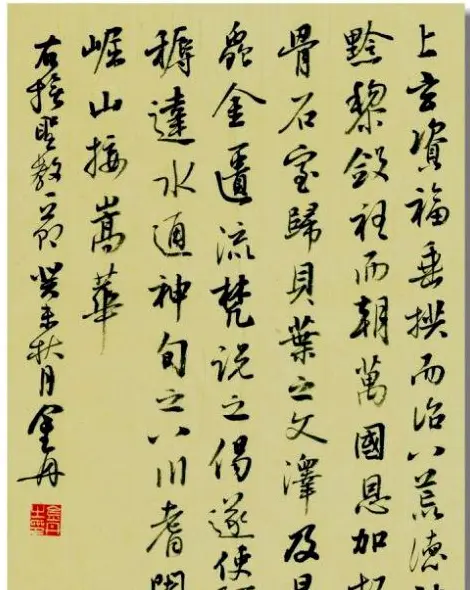 上玄資福垂拱而治八荒德
黔黎斂衽而朝萬國恩加朽
骨石室歸貝葉之文澤及昆
蟲金匱流梵說之偈遂使
耨達水通神甸之八川耆闍
崛山接嵩華
右聖教一節癸未秋月金丹